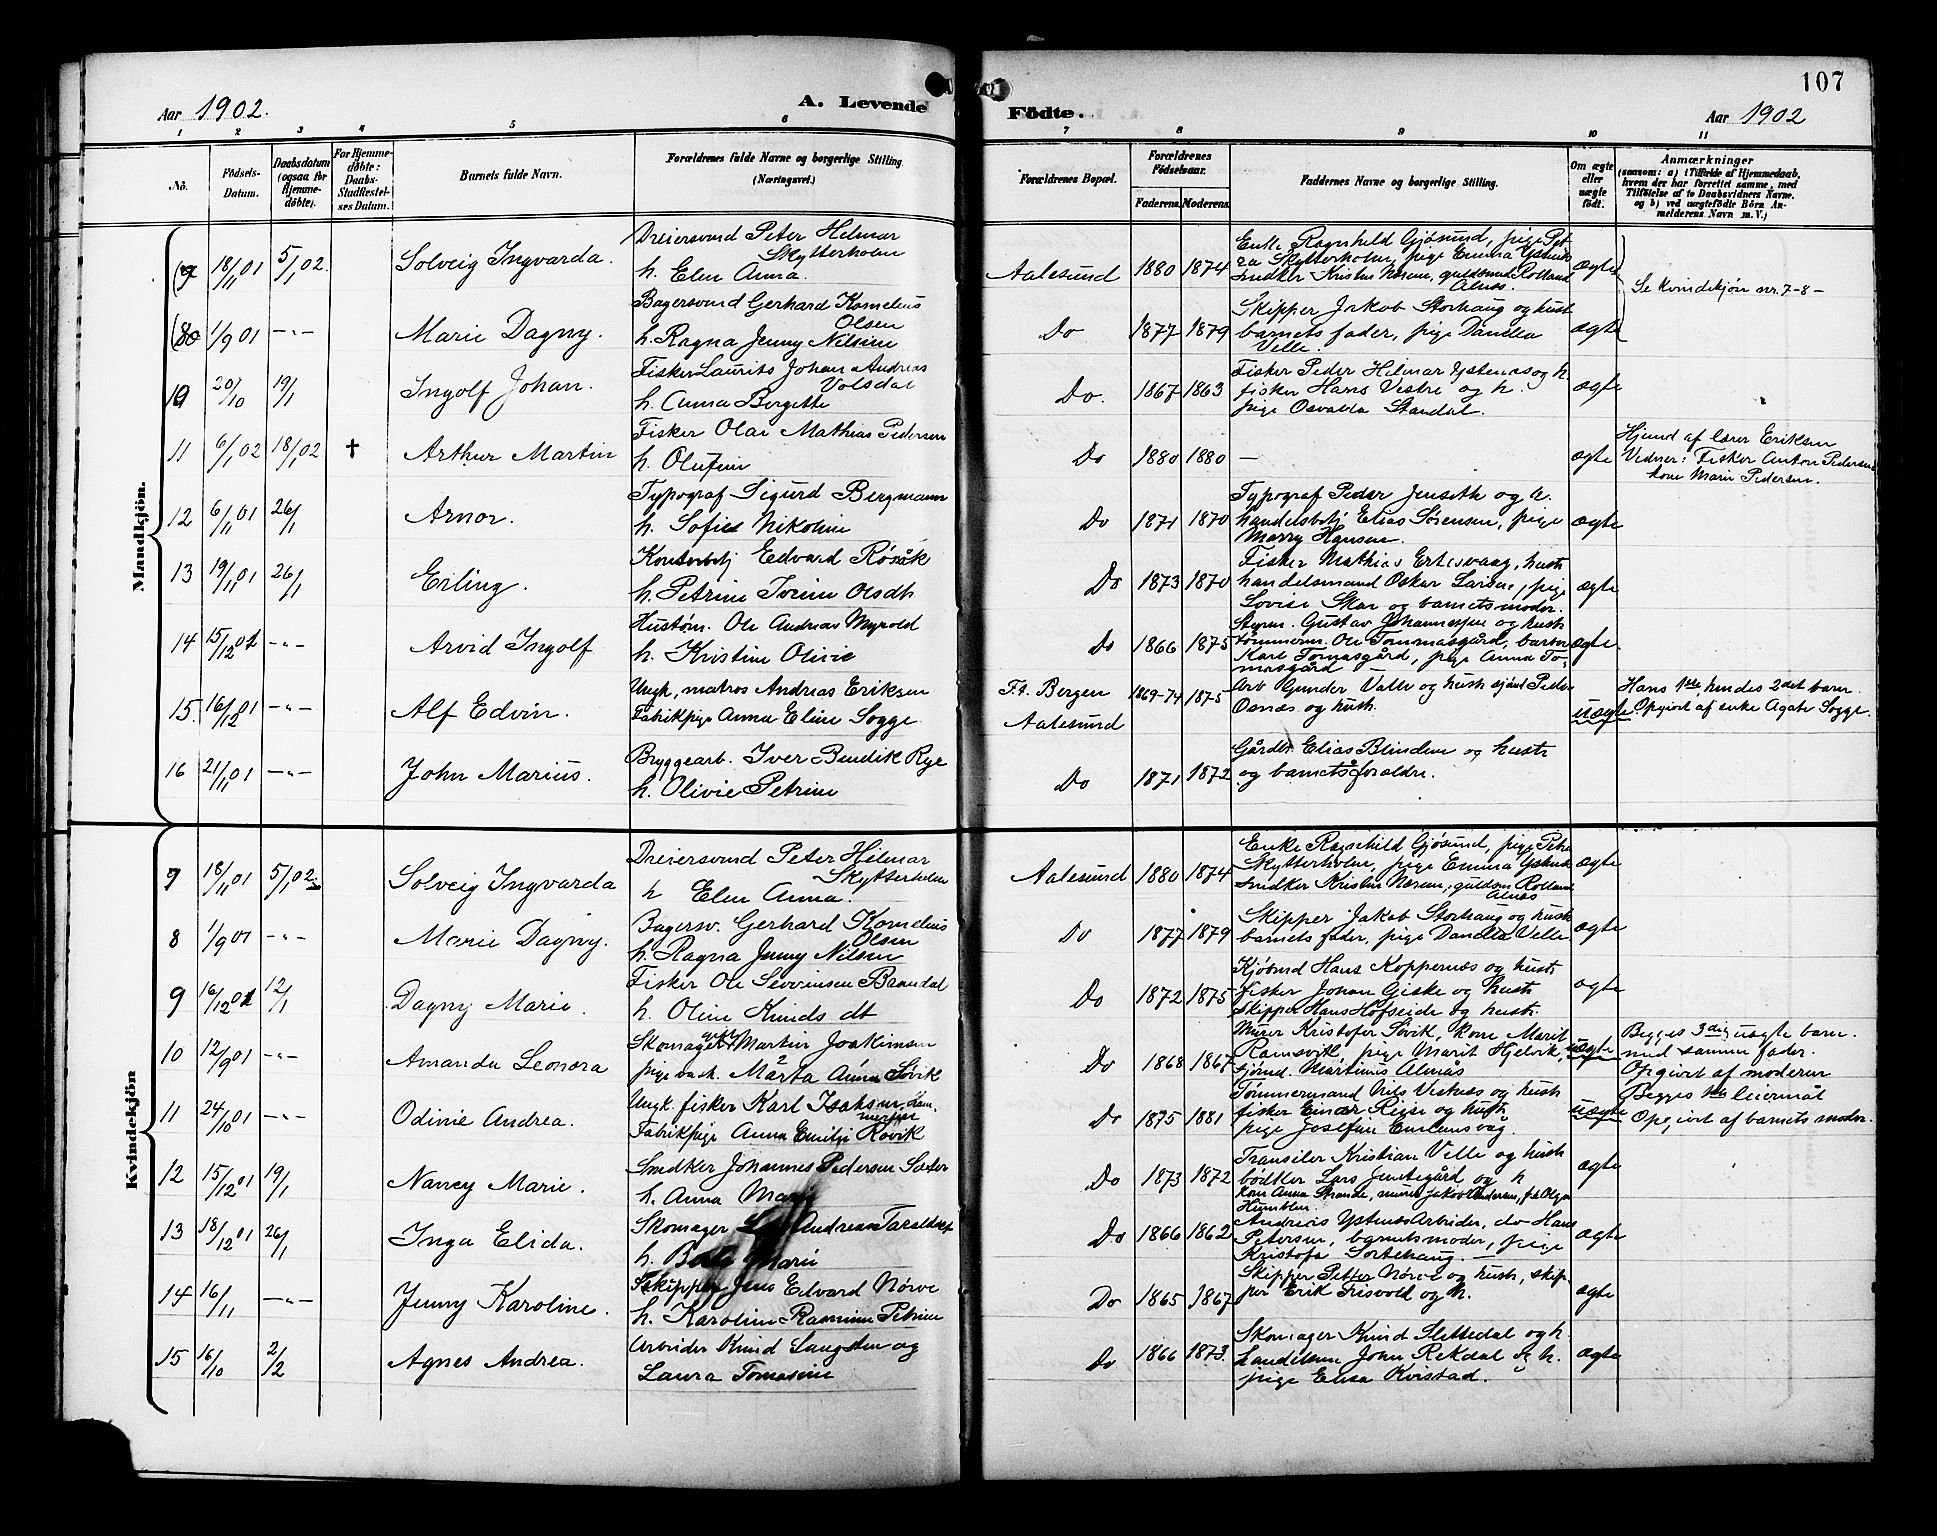 107
Aar 1902.
A. Levende
Födte.
Aar 1902
1 2 3 4 5 6 7 8 9 10 11
No.
Födsels-Datum.
Daabsdatum (ogsaa for Hjemme-döbte).
For Hjemme-döbte: Daabs-Stadfæstel-ses Datum.
Barnets fulde Navn.
Forældrenes fulde Navne og borgerlige Stilling. (Næringsvei.)
Forældrenes Bopæl.
Forældrenes Födselsaar.
Faderens. Moderens.
Faddernes Navne og borgerlige Stilling.
Om ægte eller uægte födt.
Anmærkninger (saasom: a) i Tilfælde af Hjemmedaab, hvem der har forrettet samme, med Tilföielse af to Daabsvidners Navne. og b) ved uægtefödte Börn An-melderens Navn m. V.)
Mandkjön.
(7 18/11 01 5/1 02. Solveig Ingvarda. Dreiersvend Peter Hilmar Skytterholm
h. Elen Anna.
Aalesund 1880 1874
Enke Ragnhild Gjøsund, pige Pet-
ra Skytterholm, pige Emma Ystenes
Snedker Kristen Næsem, guldsmed Rolland Alnæs.
ægte
Se kvindekjön nr. 7-8-
(8 1/9 01 -"- Marie Dagny. Bagersvend Gerhard Kornelius Olsen
h. Ragna Jenny Nilsine
Do 1877 1879
Skipper Jakob Storhaug og hust
barnets fader, pige Danelea Velle.
ægte
10 20/10 19/1 Ingolf Johan. Fisker Laurits Johan Andreas Volsdal
h. Anna Bergitte
Do. 1867 1863
Fisker Peder Hilmar Ystenes og h.
fisker Hans Vestre og h.
pige Osvalda Standal.
ægte
11 6/1 02 18/1 02 † Arthur Martin Fisker Olai Mathias Pedersen
h. Olufine
Do 1880 1880 — ægte
Hjemd af lærer Eriksen
Vidner: Fisker Anton Pedersen
kone Marie Pedersen.
12 6/11 01 26/1 Arnor. Typograf Sigurd Bergmann
h. Sofie Nikoline
Do 1871 1870
Typograf Peder Jenseth og h.
handelsbetj Elias Sørensen, pige
Marry Hansen.
ægte
13 19/11 01 26/1 Erling. Kontorbetj Edvard Røsåk
h. Petrine Iverine Olsdt
Do 1873 1870
Fisker Mathias Ertesvaag, hustr
handelsmand Oskar Larsen, pige
Lovise Skar og barnets moder.
ægte
14 15/12 01 -"- Arvid Ingolf Hustøm. Ole Andreas Myrold
h. Kristine Olivie
Do 1866 1875
Styrm. Gustav Johannessen og hust
tømmerm. Ole Tommasgård, barber
Karl Tomasgård, pige Anna To-
masgård
ægte.
15. 16/12 01 -"- Alf Edvin. Ungk, matros Andreas Eriksen
Fabrikpige Anna Eline Sogge
F.t. Bergen
Aalesund
1869-74 1875
Arb Gunder Valle og hust sjömd Peder
Osnæs og hust.
uægte
Hans 1ste, hendes 2det barn.
Opgivet af enke Agate Sogge.
16 21/11 01 -"- John Marius. Bryggearb. Iver Bendik Rye
h. Olivie Petrine
Do 1871 1872
Gårdbr. Elias Blindem og hustr
og barnets forældre.
Kvindekjön
7 18/11 01 5/1 02. Solveig Ingvarda Dreiersvend Peter Hilmar Skytterholm
h Elen Anna.
Aalesund 1880 1874
Enke Ragnhild Gjøsund, pige Petra
Skytterholm, pige Emma Ystenes
Snedker Kristen Næsem, guldsm Rolland Alnæs
ægte
8 1/9 01 -"- Marie Dagny. Bagersv. Gerhard Kornelius Olsen
h. Ragna Jenny Nilsen
Do 1877 1879
Skipper Jakob Storhaug og hust
barnets fader, pige Danelea Velle
ægte
9 16/12 01 12/1 Dagny Marie. Fisker Ole Severinsen Bamdal
h. Oline Knuds dt
Do 1872 1875
Kjøbmd Hans Koppernæs og hustr
Fisker Johan Giske og hustr
Skipper Hans Hofseide og hustr.
ægte
10 12/9 01 -"- Amanda Leonora Skomager Martin Joakimsen
pige Märta Anna Søvik
Do 1868 1867
Murer Kristofer Søvik, kone Marit
Ramsvik, pige Marit Hjelvik,
sjömd. Martinus Alnæs
uægte
Begges 3die uægte barn.
med samme fader.
Opgivet af moderen
11 24/10 01 -"- Odinie Andrea. Ungk. fisker Karl Isaksen
Fabrikpige Anna Emilie Røvik
Do 1875 1881
Tømmermand Nils Vestnes og hust
fisker Einar Reise og hust
pige Josefine Emlemsvåg.
uægte
Begges 1ste leiermål
Opgivet af barnets moder.
12 15/12 01 19/1 Nancy Marie. Snedker Johannes Pedersen Sæter
h. Anna Marie
Do 1873 1872
Transiler Kristian Velle og hust
bødker Lars Jentegård og h
Kone Anna Strande, murer Jakob Andersen, frk Olga
Humblen.
ægte
13 18/12 01 26/1 Inga Elida. Skomager Andreas Taraldset
h. Marie
Do 1866 1862
Andreas Ystenes Arbeider, do Hans
Petersen, barnets moder, pige
Kristofa Sortehaug.
ægte
14 16/11 -"- Jenny Karoline. Skipper Jens Edvard Nørve
h. Karoline Rasmine Petrine
Do 1865 1867
Skipper Petter Nörve og hust, skip-
per Erik Frisvold og h.
ægte
15 16/10 2/2 Agnes Andrea. Arbeider Knud Langsten og
Laura Tomasine
Do 1866 1873.
Skomager Knud Slettedal og h.
handelsm John Rekdal & h.
pige Elisa Kvistad.
ægte